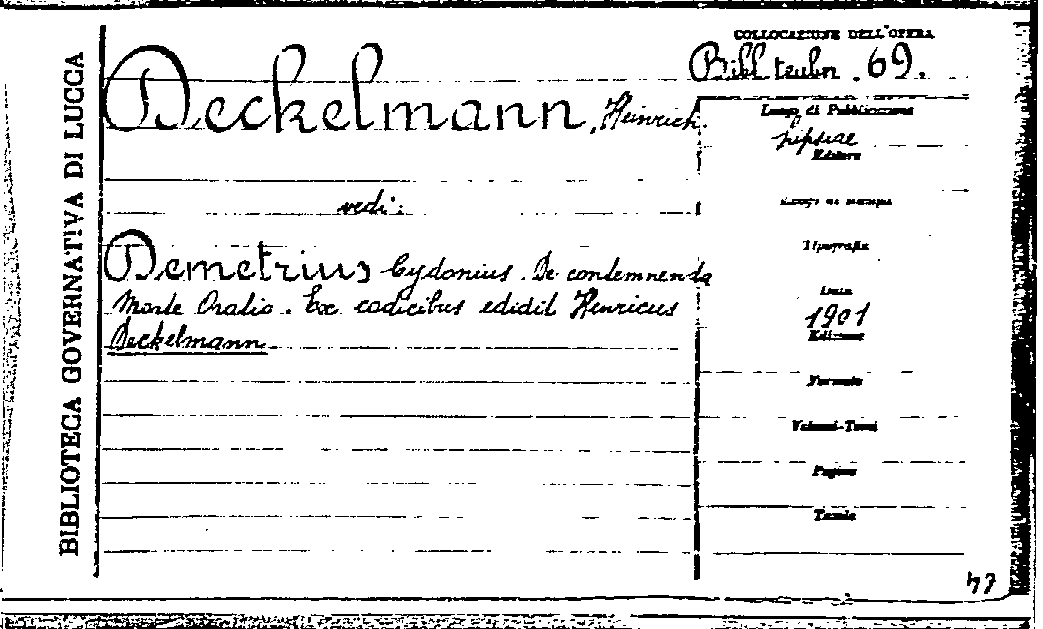 BIBLIOTECA GOVERNATIVA DI LUCCA
COLLOCAZIONE DELL'OPERA
Bibl. teubn. 69.
Deckelmann, Heinrich.
Luogo di Pubblicazione
Lipsiae
Editore
vedi:
Luogo di stampa
Tipografia
Demetrius Cydonius. De contemnenda
Morte Oratio. Ex codicibus edidit Henricus
Deckelmann
Data
1901
Edizione
Formato
Volumi-Tomi
Pagine
Tavole
47